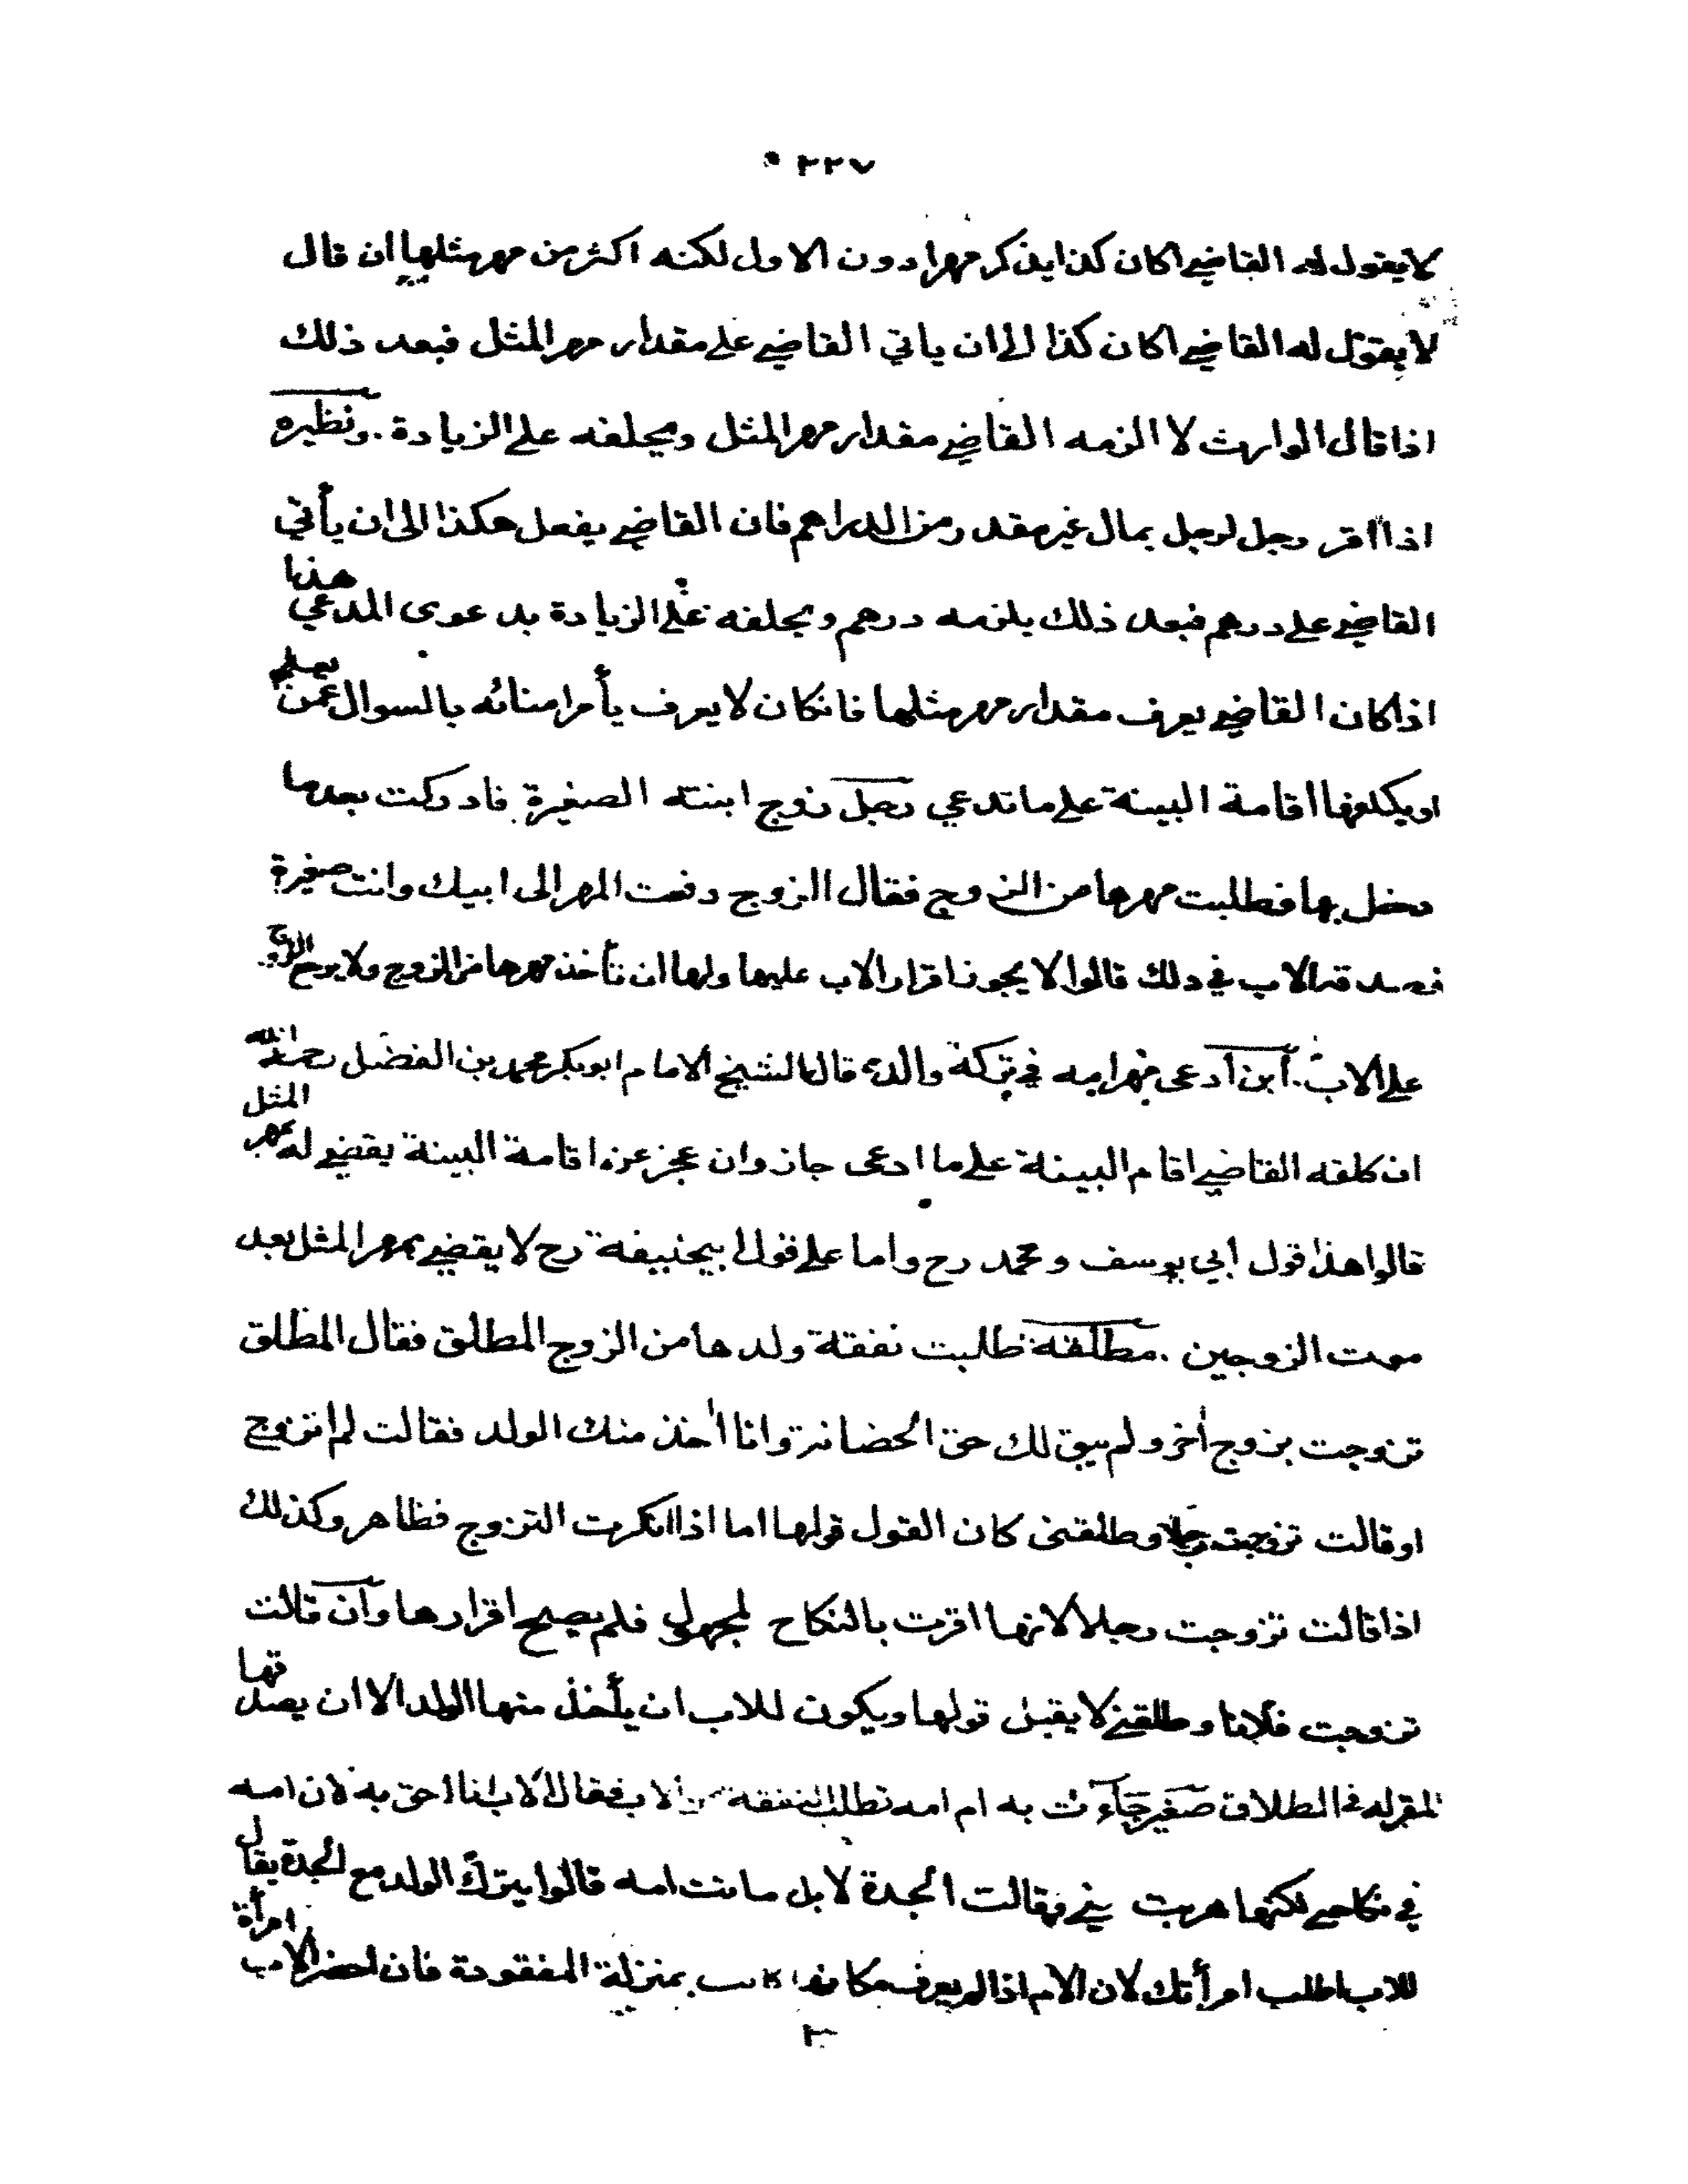 ٢٢٧
لا يقول له القاضي اكان كذا يذكر مهرا دون الاول لكنه اكثر من مهر مثلها ان قال
لا يقول له القاضي اكان كذا الى ان ياتي القاضي على مقدار مهر المثل فبعد ذلك
اذا قال الوارث لا الزمه القاضي مقدار مهر المثل ويحلفه على الزيادة . ونظيره
اذا اقر رجل لرجل بمال غير مقدر من الدراهم فان القاضي يفعل هكذا الى ان يأتي
القاضي على درهم فبعد ذلك يلزمه درهم ويحلفه على الزيادة بدعوى المدعي هذا
اذا كان القاضي يعرف مقدار مهر مثلها فانكان لا يعرف يأمر امنائه بالسوال عمن يعلم
او يكلفها اقامة البينة على ما تدعي رجل زوج ابنته الصغيرة فادركت بعدما
دخل بها فطلبت مهرها من الزوج فقال الزوج دفعت المهر الى ابيك وانت صغيرة
فصدقه الاب في ذلك قالوا لا يجوز اقرار الاب عليها ولها ان تأخذ مهرها من الزوج ولا يرجع الزوج
على الاب . ابن ادعى مهر امه في تركة والده قال الشيخ الامام ابو بكر محمد بن الفضل رحمه الله
ان كلفه القاضي اقام البينة على ما ادعى جاز وان عجز عن اقامة البينة يقضي له بمهر المثل
قالوا هذا قول أبي يوسف و محمد رح واما على قول ابيحنيفة رح لا يقضي بمهر المثل بعد
موت الزوجين . مطلقة طلبت نفقة ولدها من الزوج المطلق فقال المطلق
تزوجت بزوج أخر و لم يبق لك حق الحضانة وانا أخذ منك الولد فقالت لم اتزوج
او قالت تزوجت رجلا وطلقني كان القول قولها اما اذا انكرت التزوج فظاهر وكذلك
اذا قالت تزوجت رجلا لانها اقرت بالنكاح لمجهول فلم يصح اقرارها وان قالت
تزوجت فلانا وطلقني لا يقبل قولها ويكون للاب ان يأخذ منها الولد الا ان يصدقها
المقرله في الطلاق صغير جاءت به ام امه تطلب النفقة من الاب فقال الاب انا احق به لان امه
في نكاحي لكنها هربت مني فقالت الجدة لا بل ماتت امه قالوا يترك الولد مع الجدة يقال
للاب اطلب امرأتك لان الام اذا لم يعرف مكانها كانت بمنزلة المفقودة فان احضر الاب امرأة